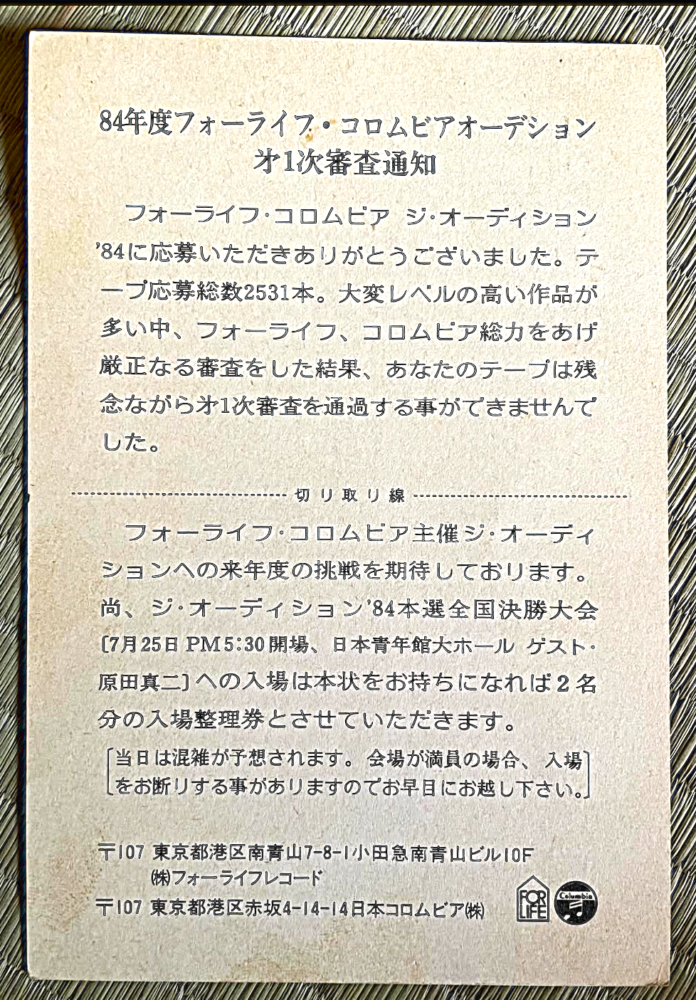 84年度フォーライフ・コロムビアオーデション
才1次審査通知
フォーライフ・コロムビア ジ・オーディション
'84に応募いただきありがとうございました。テ
ープ応募総数2531本。大変レベルの高い作品が
多い中、フォーライフ、コロムビア総力をあげ
厳正なる審査をした結果、あなたのテープは残
念ながら才1次審査を通過する事ができませんで
した。
切り取り線
フォーライフ・コロムビア主催ジ・オーディ
ションへの来年度の挑戦を期待しております。
尚、ジ・オーディション'84本選全国決勝大会
〔7月25日 PM5:30開場、日本青年館大ホール ゲスト・
原田真二〕への入場は本状をお持ちになれば2名
分の入場整理券とさせていただきます。
〔当日は混雑が予想されます。会場が満員の場合、入場
をお断りする事がありますのでお早目にお越し下さい。〕
〒107 東京都港区南青山7-8-1小田急南青山ビル10F
㈱フォーライフレコード
〒107 東京都港区赤坂4-14-14日本コロムビア㈱
FOR LIFE
Columbia